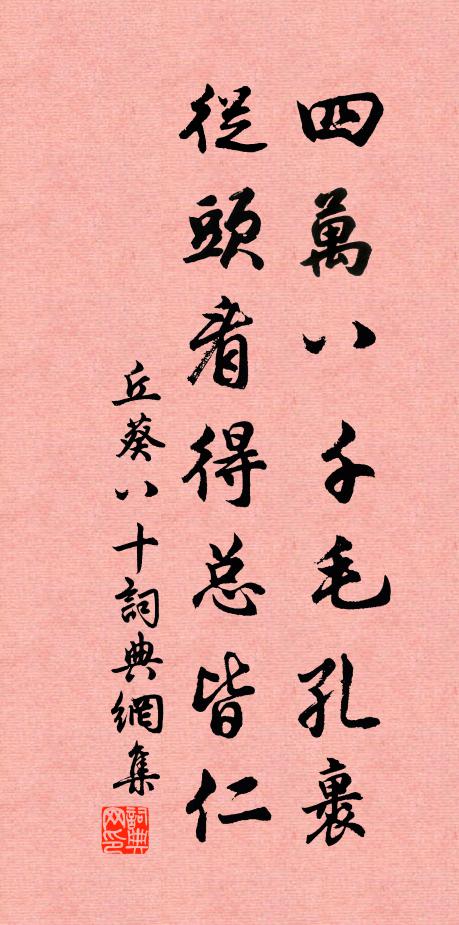 四萬八千毛孔裏
從頭看得总皆仁
丘葵八十詞典網集
詞典网印